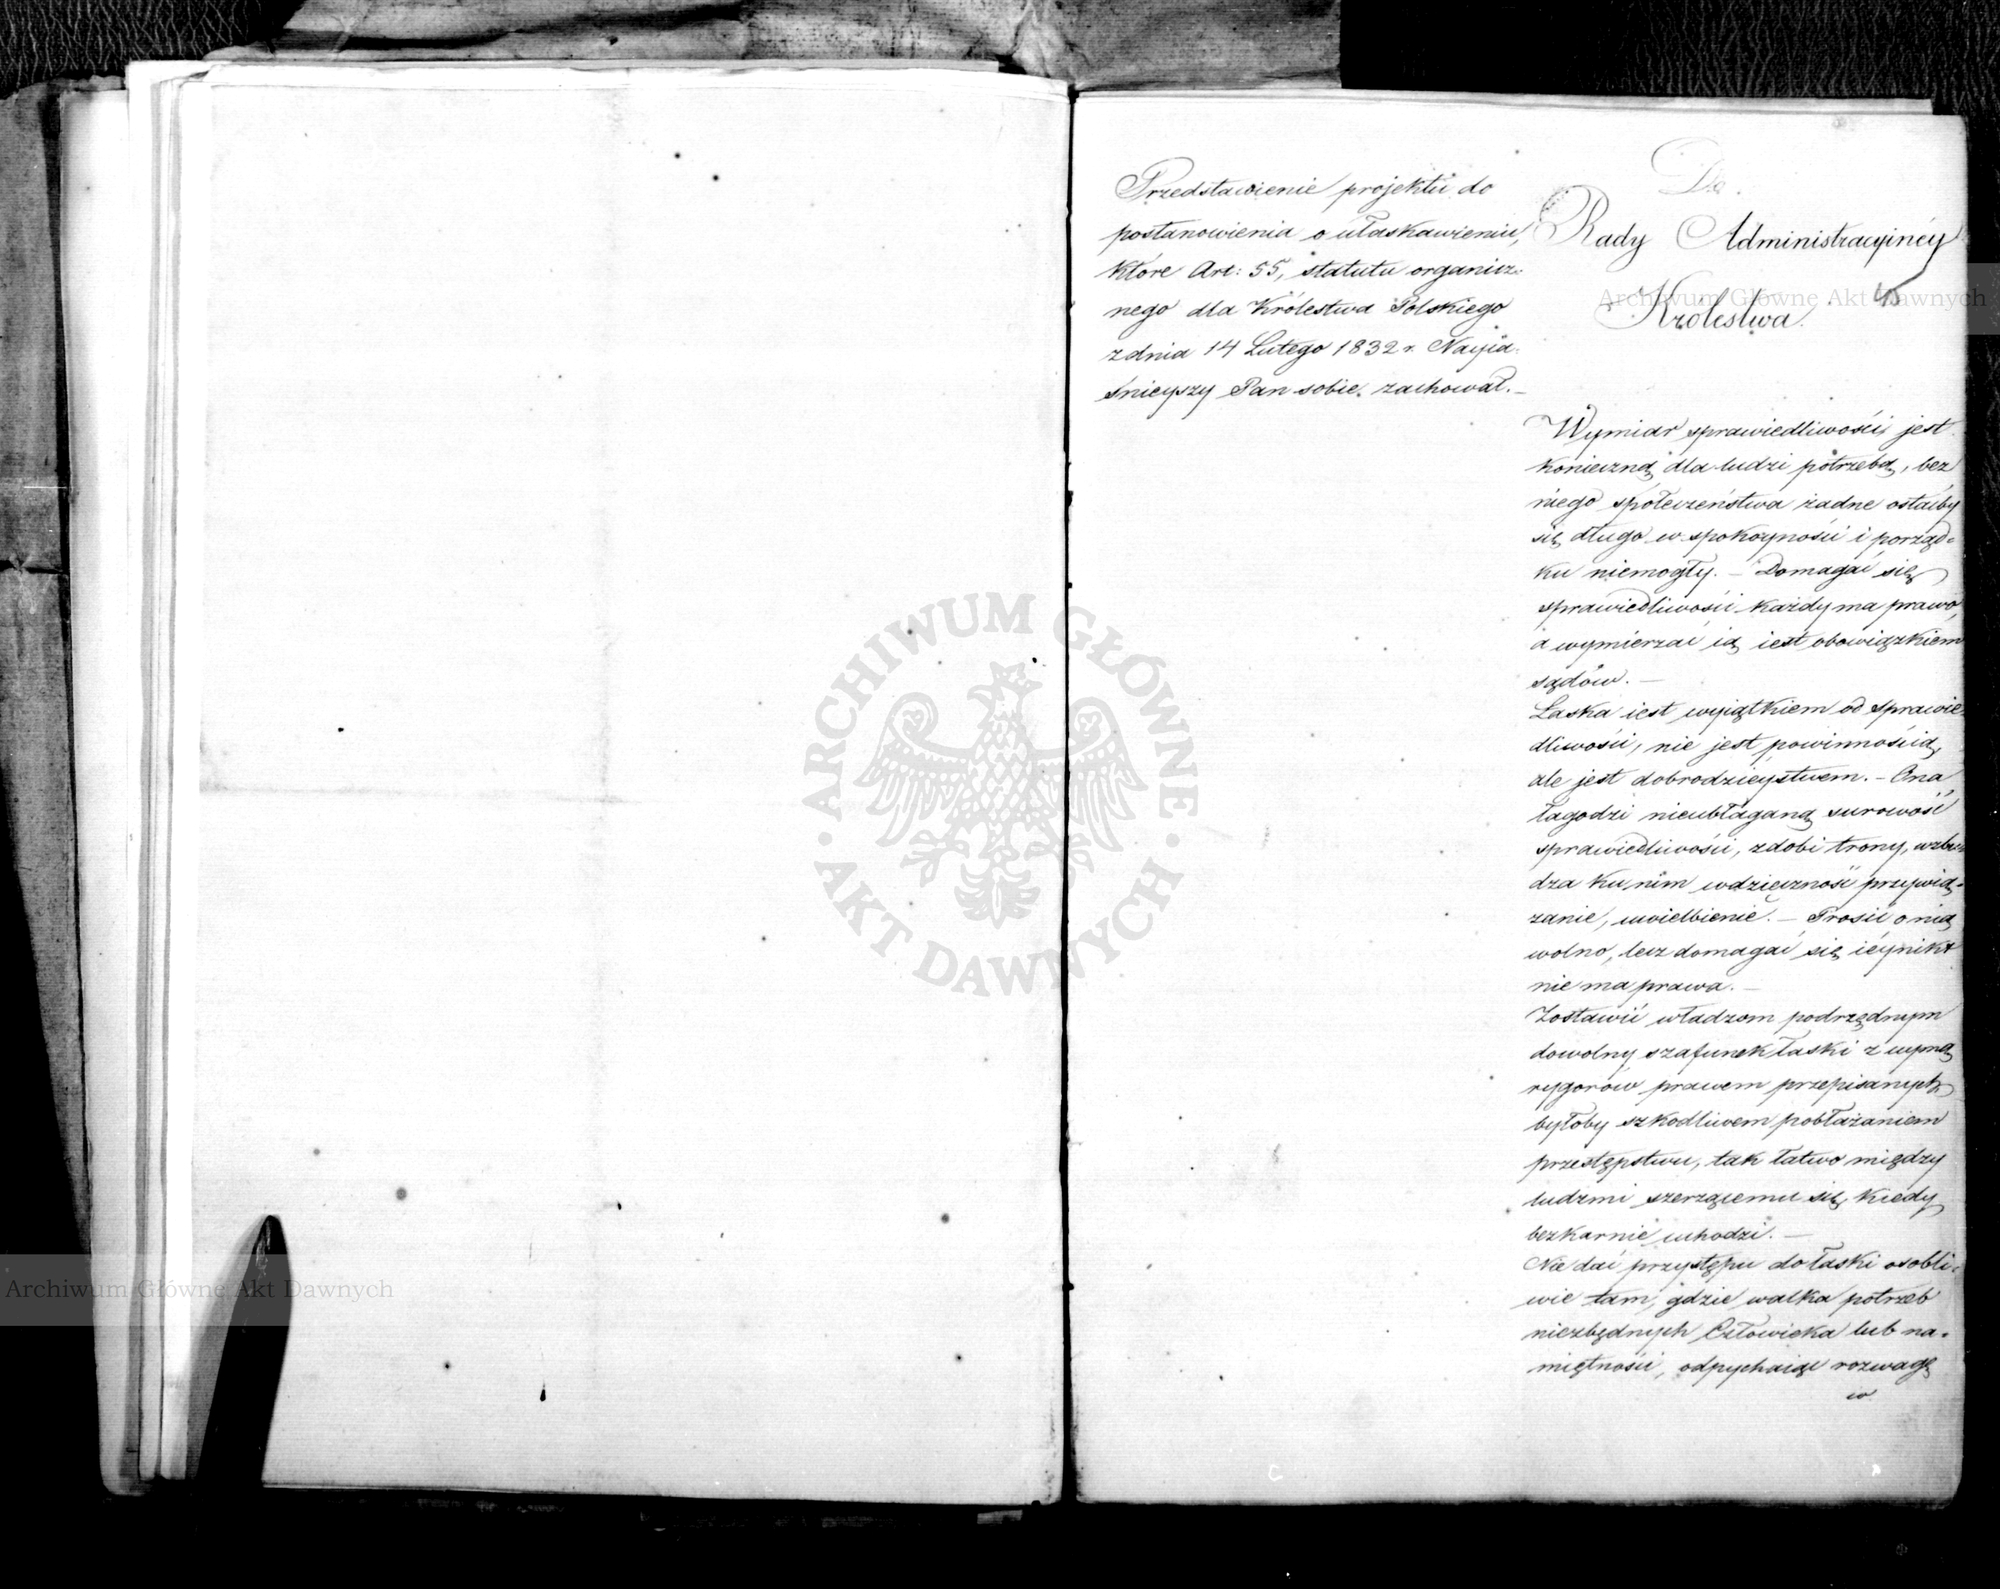 Przedstawienie projektu do
postanowienia o ułaskawieniu,
które Art: 55, statutu organicz=
nego dla Królestwa Polskiego
z dnia 14 Lutego 1832 r. Nayia=
śnieyszy Pan sobie zachował. —
Do
Rady Administracyinéy
Królestwa.
45
Wymiar sprawiedliwości jest
konieczną dla ludzi potrzebą, bez
niego społeczeństwa żadne ostaćby
się długo w spokoyności i porząd=
ku niemogły. — Domagać się
sprawiedliwości każdy ma prawo,
a wymierzać ią iest obowiązkiem
sądów. —
Łaska iest wyiątkiem od sprawie
dliwości, nie jest powinnością,
ale jest dobrodzieystwem. — Ona
łagodzi nieubłaganą surowość
sprawiedliwości, zdobi trony, wzbu=
dza ku nim wdzięczność przywią=
zanie, uwielbienie. — Prosić o nią
wolno, lecz domagać się iéy nikt
nie ma prawa. —
Zostawić władzom podrzędnym
dowolny szafunek łaski z
rygorów prawem przepisanych
byłoby szkodliwem pobłażaniem
przestępstwu, tak łatwo między
ludźmi szerzącemu się, kiedy
bezkarnie uchodzi. —
Nie dać przystępu do łaski osobli=
wie tam, gdzie walka potrzeb
niezbędnych Człowieka lub na=
miętności, odpychaiąc rozwagę
w
Archiwum Główne Akt Dawnych
Archiwum Główne Akt Dawnych
ARCHIWUM GŁÓWNE · AKT DAWNYCH ·